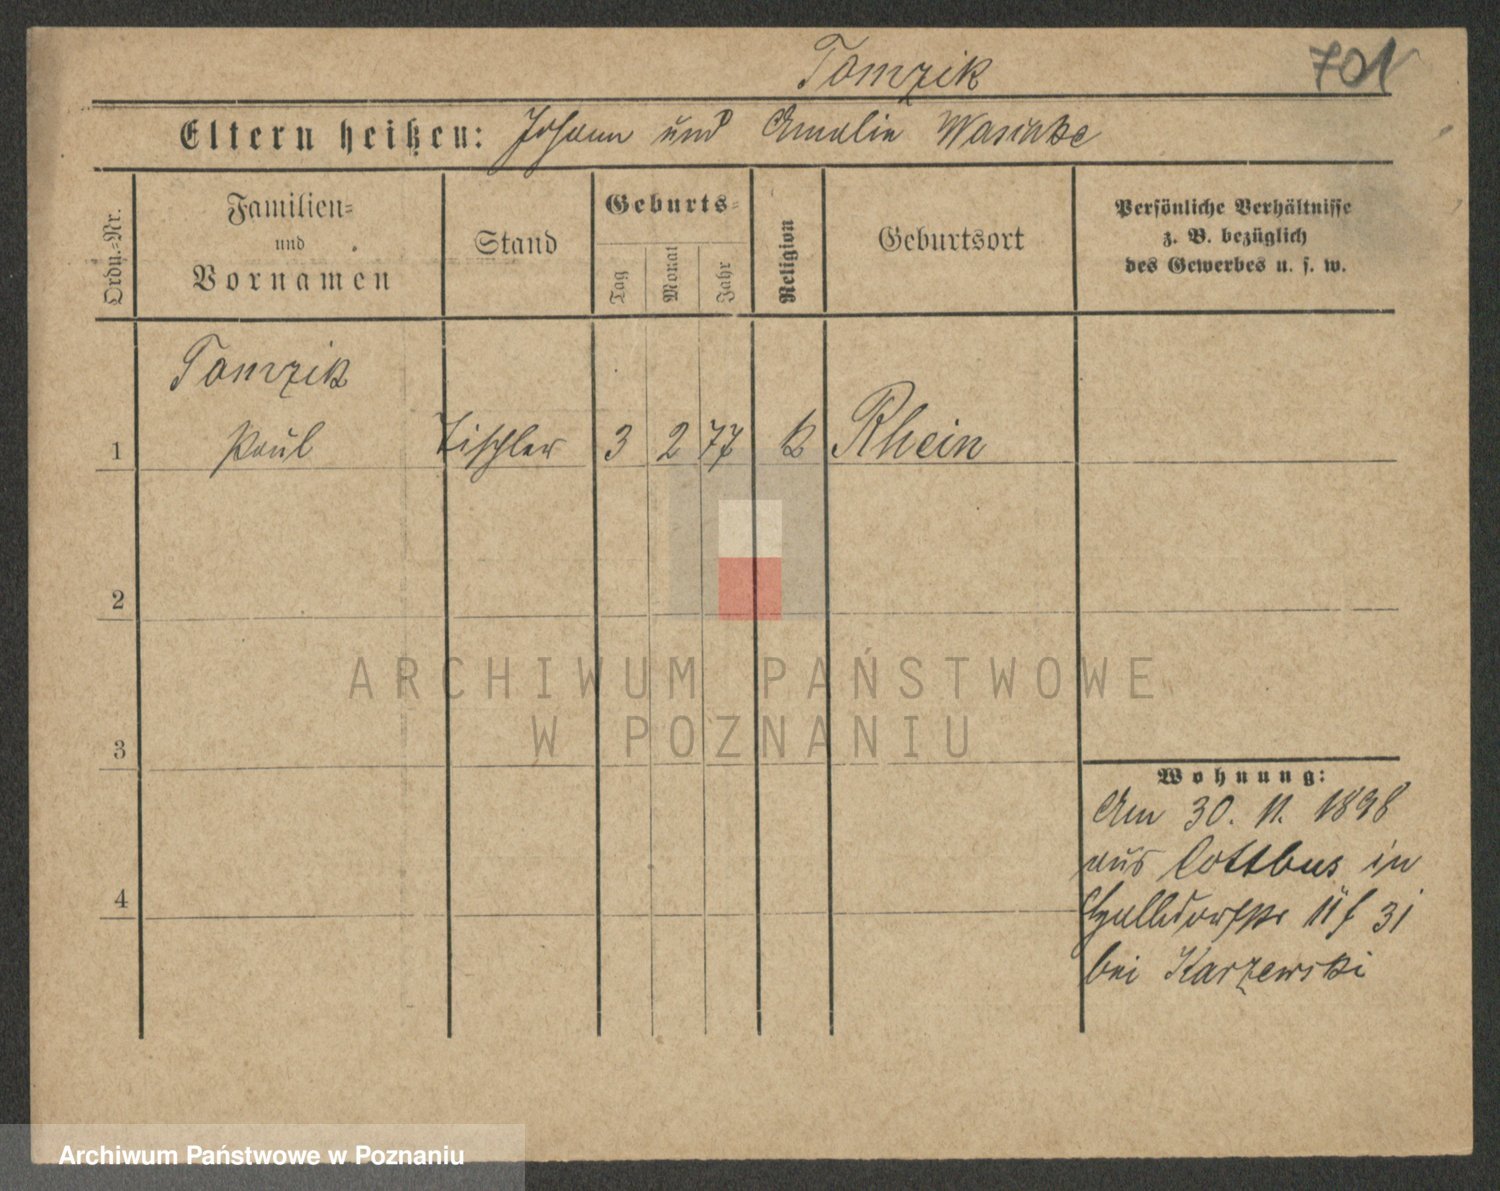 Tomzik
701
Eltern heißen: Johann und Amalie
Ordn.-Nr.
Familien-
und
Vornamen
Stand
Geburts-
Tag
Monat
Jahr
Religion
Geburtsort
Persönliche Verhältnisse
z. B. bezüglich
des Gewerbes u. s. w.
Tomzik
1 Paul Tischler 3 2 77 k Rhein
2
ARCHIWUM PAŃSTWOWE
W POZNANIU
3
Wohnung:
Am 30. 11. 1898
aus Cottbus in
31
4
bei Karzewski
Archiwum Państwowe w Poznaniu